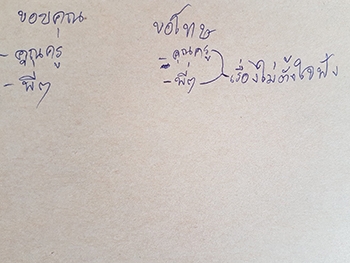 ขอบคุณ
- คุณครู
- พี่ๆ
ขอโทษ
- คุณครู
- พี่ๆ
เรื่องไม่ตั้งใจฟัง